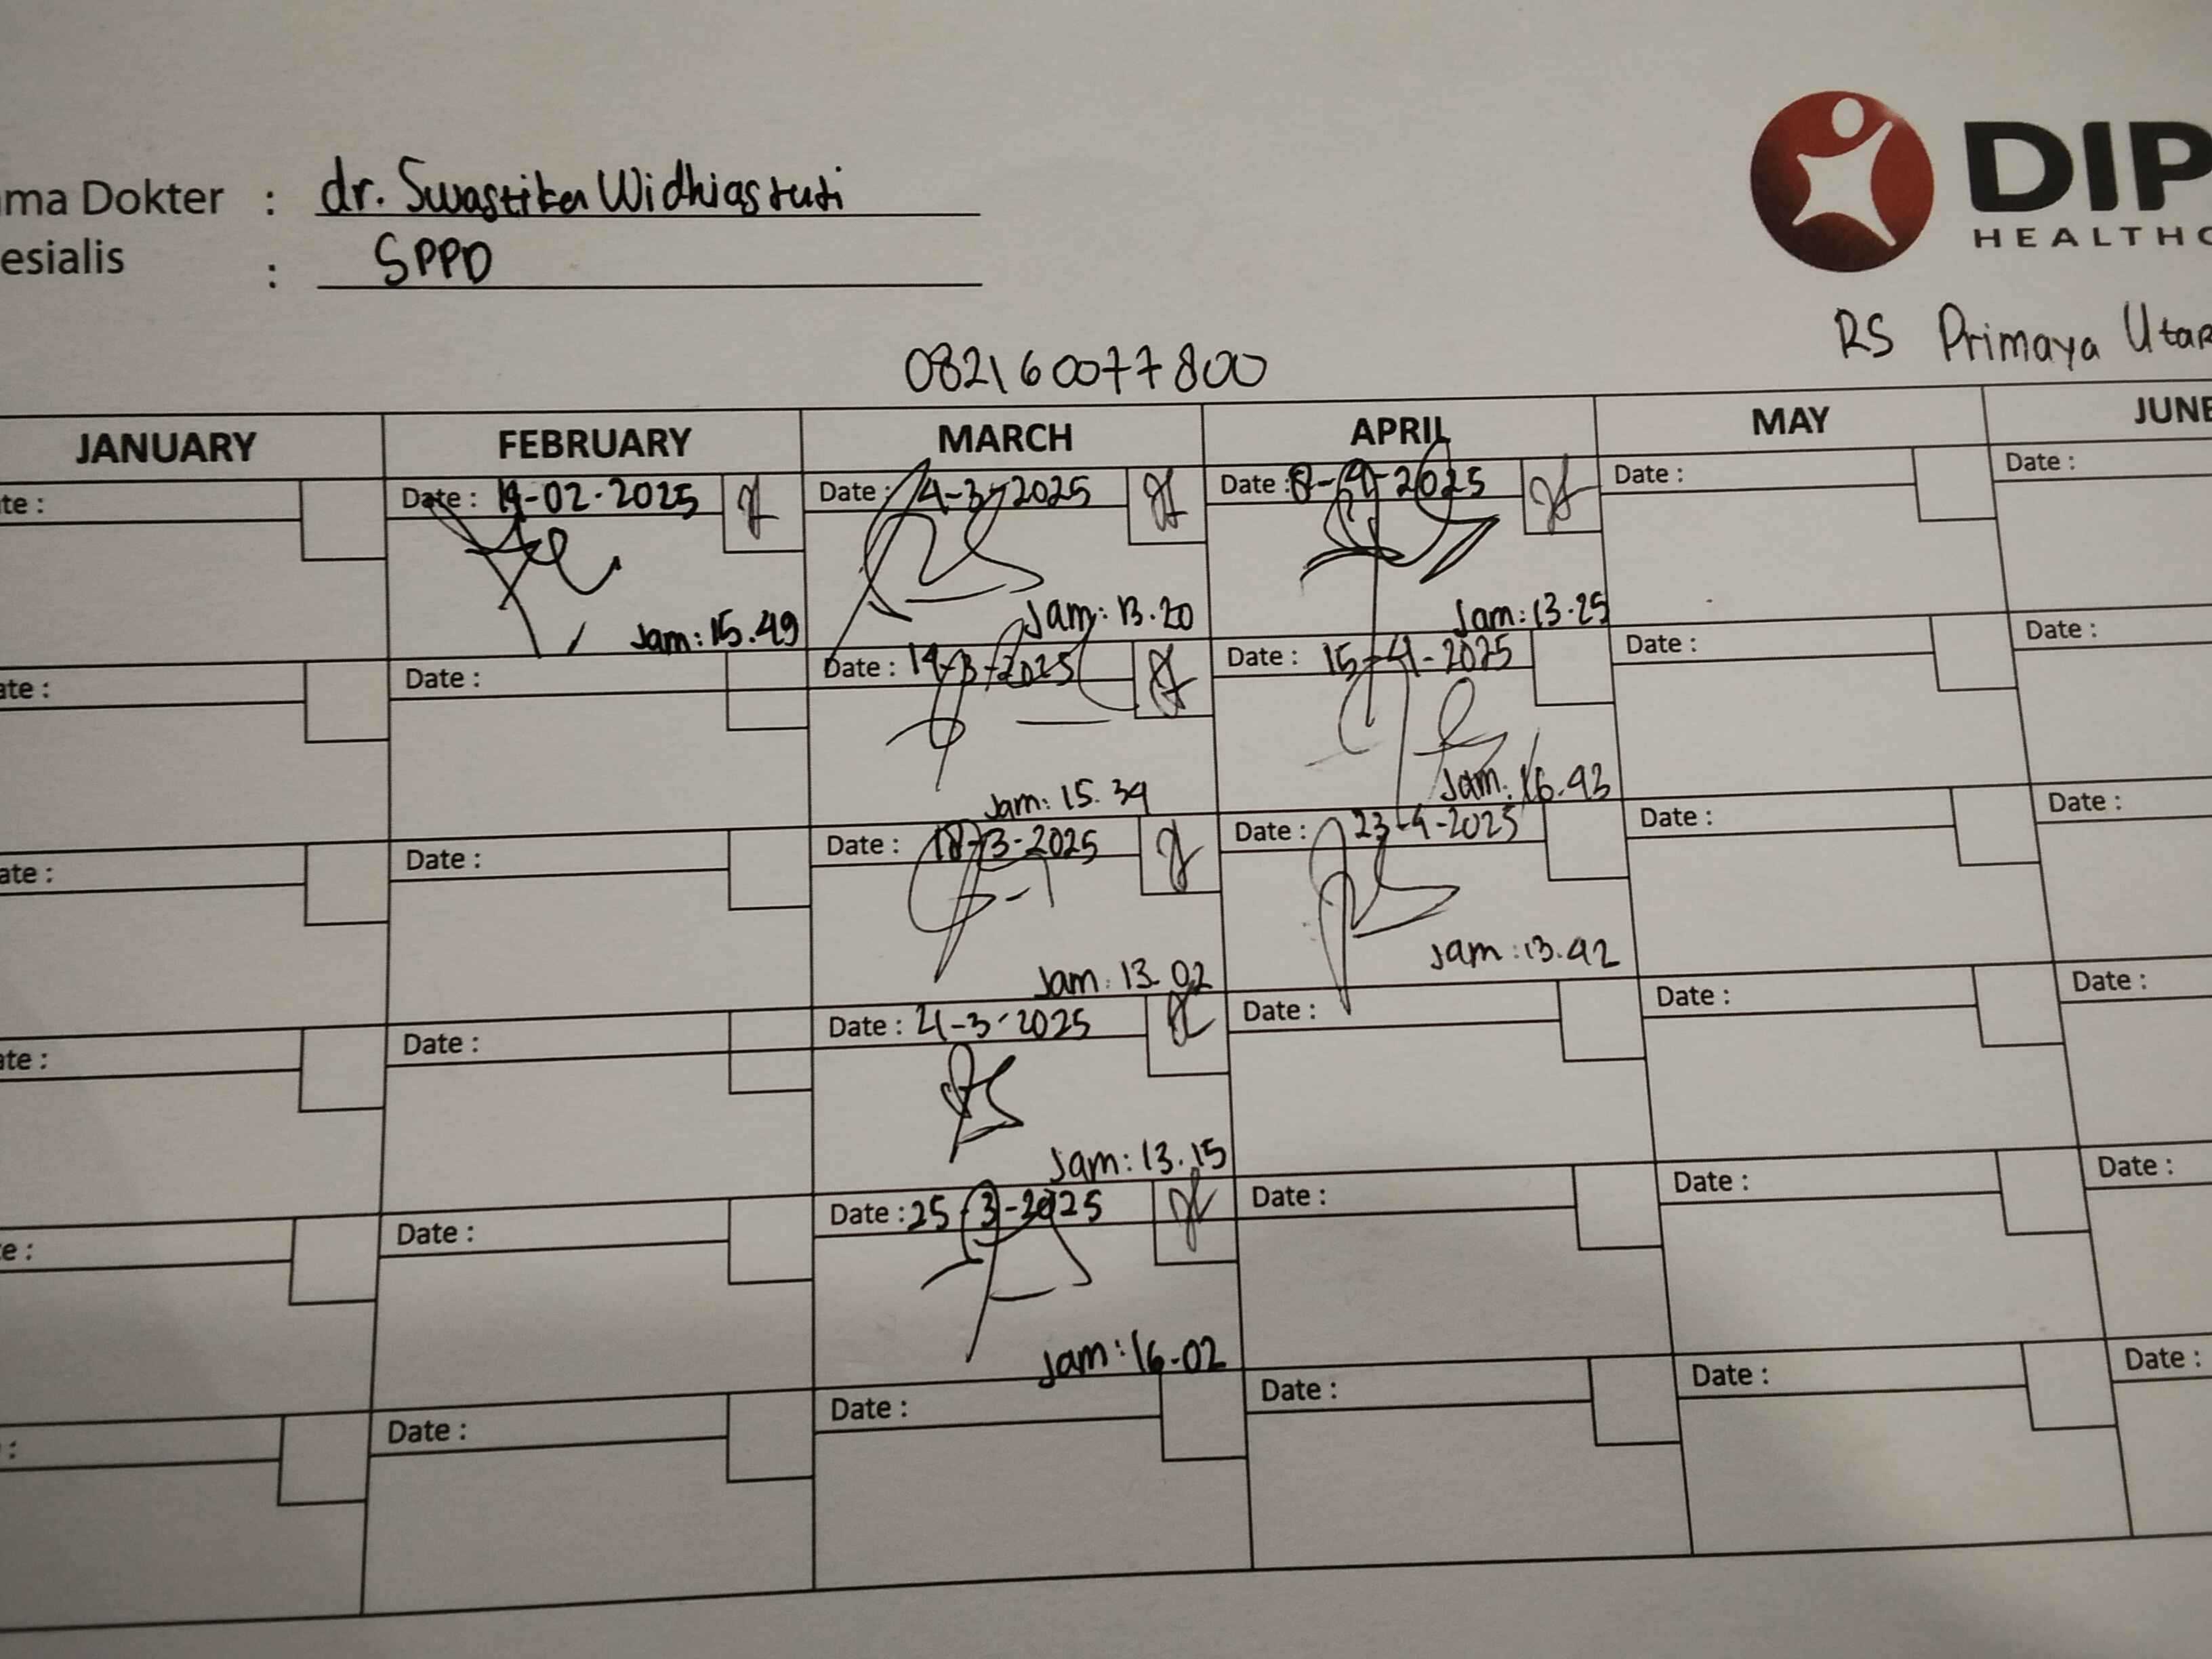 ma Dokter : dr. Swastika Widhiastuti
esialis : SPPD
DIP
HEALTHC
RS Primaya Utar
082160077800
JANUARY FEBRUARY MARCH APRIL MAY JUNE
te : Date : 19-02-2025 Date : 4-3-2025 Date : 8-4-2025 Date : Date :
Jam: 15.49 Jam: 13.20 Jam: 13.25
ate : Date : Date : 14-3-2025 Date : 15-4-2025 Date : Date :
Jam: 15.34 Jam: 16.43
ate : Date : Date : 18-3-2025 Date : 23-4-2025 Date : Date :
Jam: 13.02 Jam: 13.42
ate : Date : Date : 21-3-2025 Date : Date : Date :
Jam: 13.15
e : Date : Date : 25-3-2025 Date : Date : Date :
Jam: 16.02
: Date : Date : Date : Date : Date :